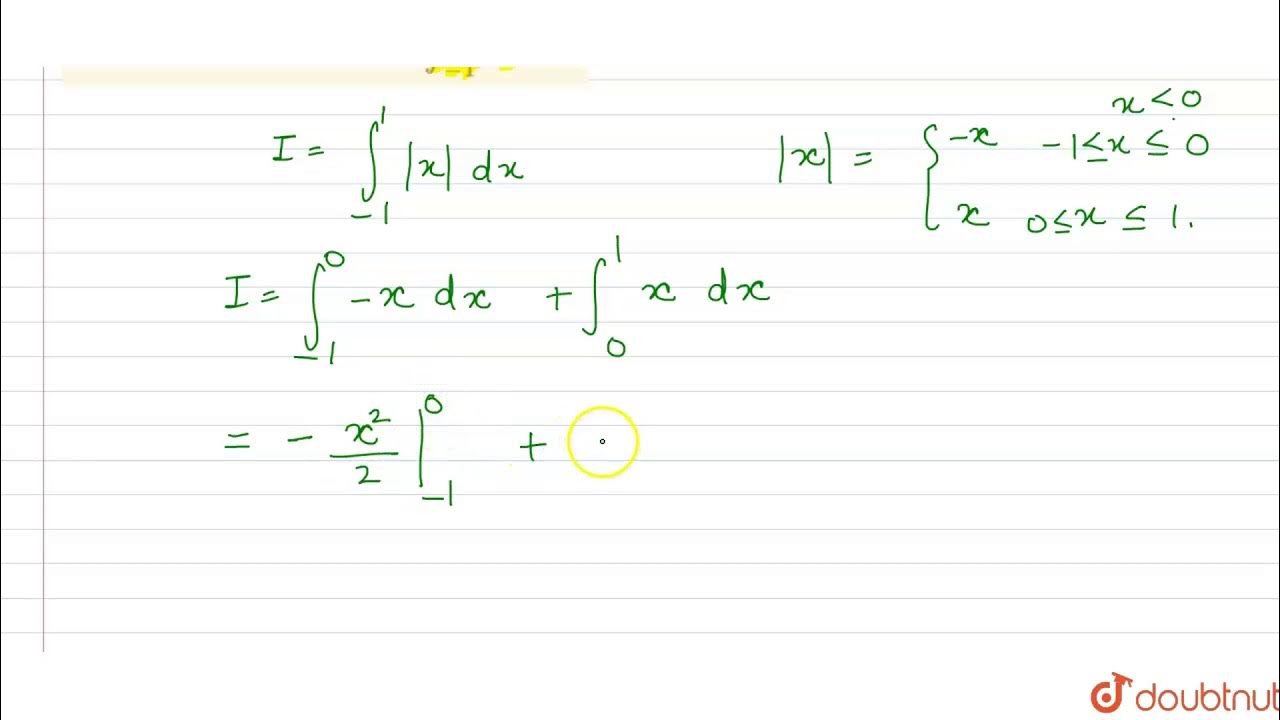 I = ∫_{-1}^{1} |x| dx
|x| = { -x -1 ≤ x ≤ 0 x < 0
x 0 ≤ x ≤ 1.
I = ∫_{-1}^{0} -x dx + ∫_{0}^{1} x dx
= - x²/2 |_{-1}^{0} +
doubtnut